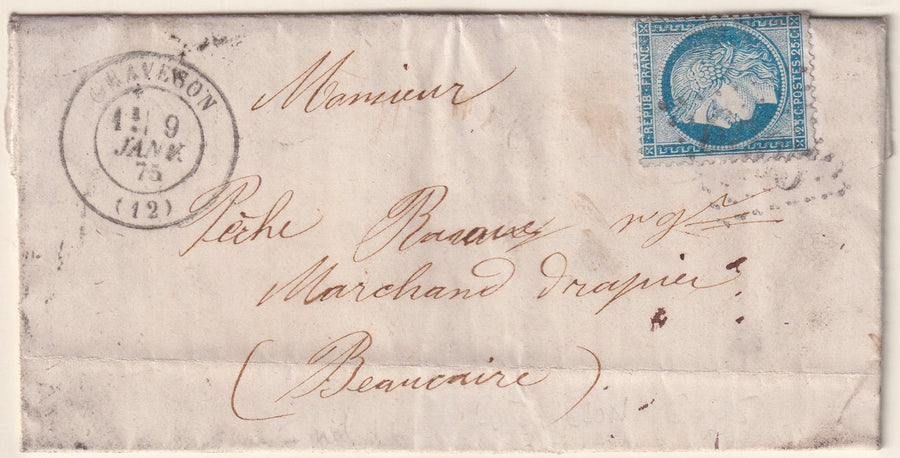 GRAVESON
1E 9
JANV.
75
(12)
REPUB. FRANC.
25 C. POSTES 25 C.
Monsieur
Pèche Razaux ngt
Marchand drapier
(Beaucaire).